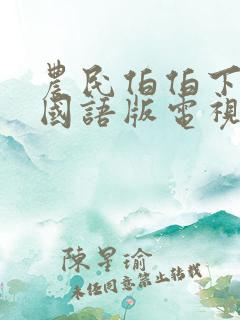 農民伯伯下
國語版電視
陳星瑜
未經同意禁止轉載